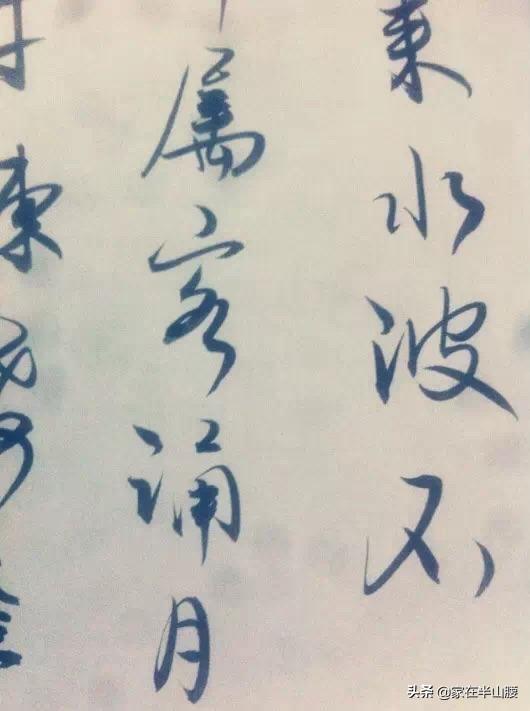 来水波不
属客誦月
東
头条 @家在半山腰